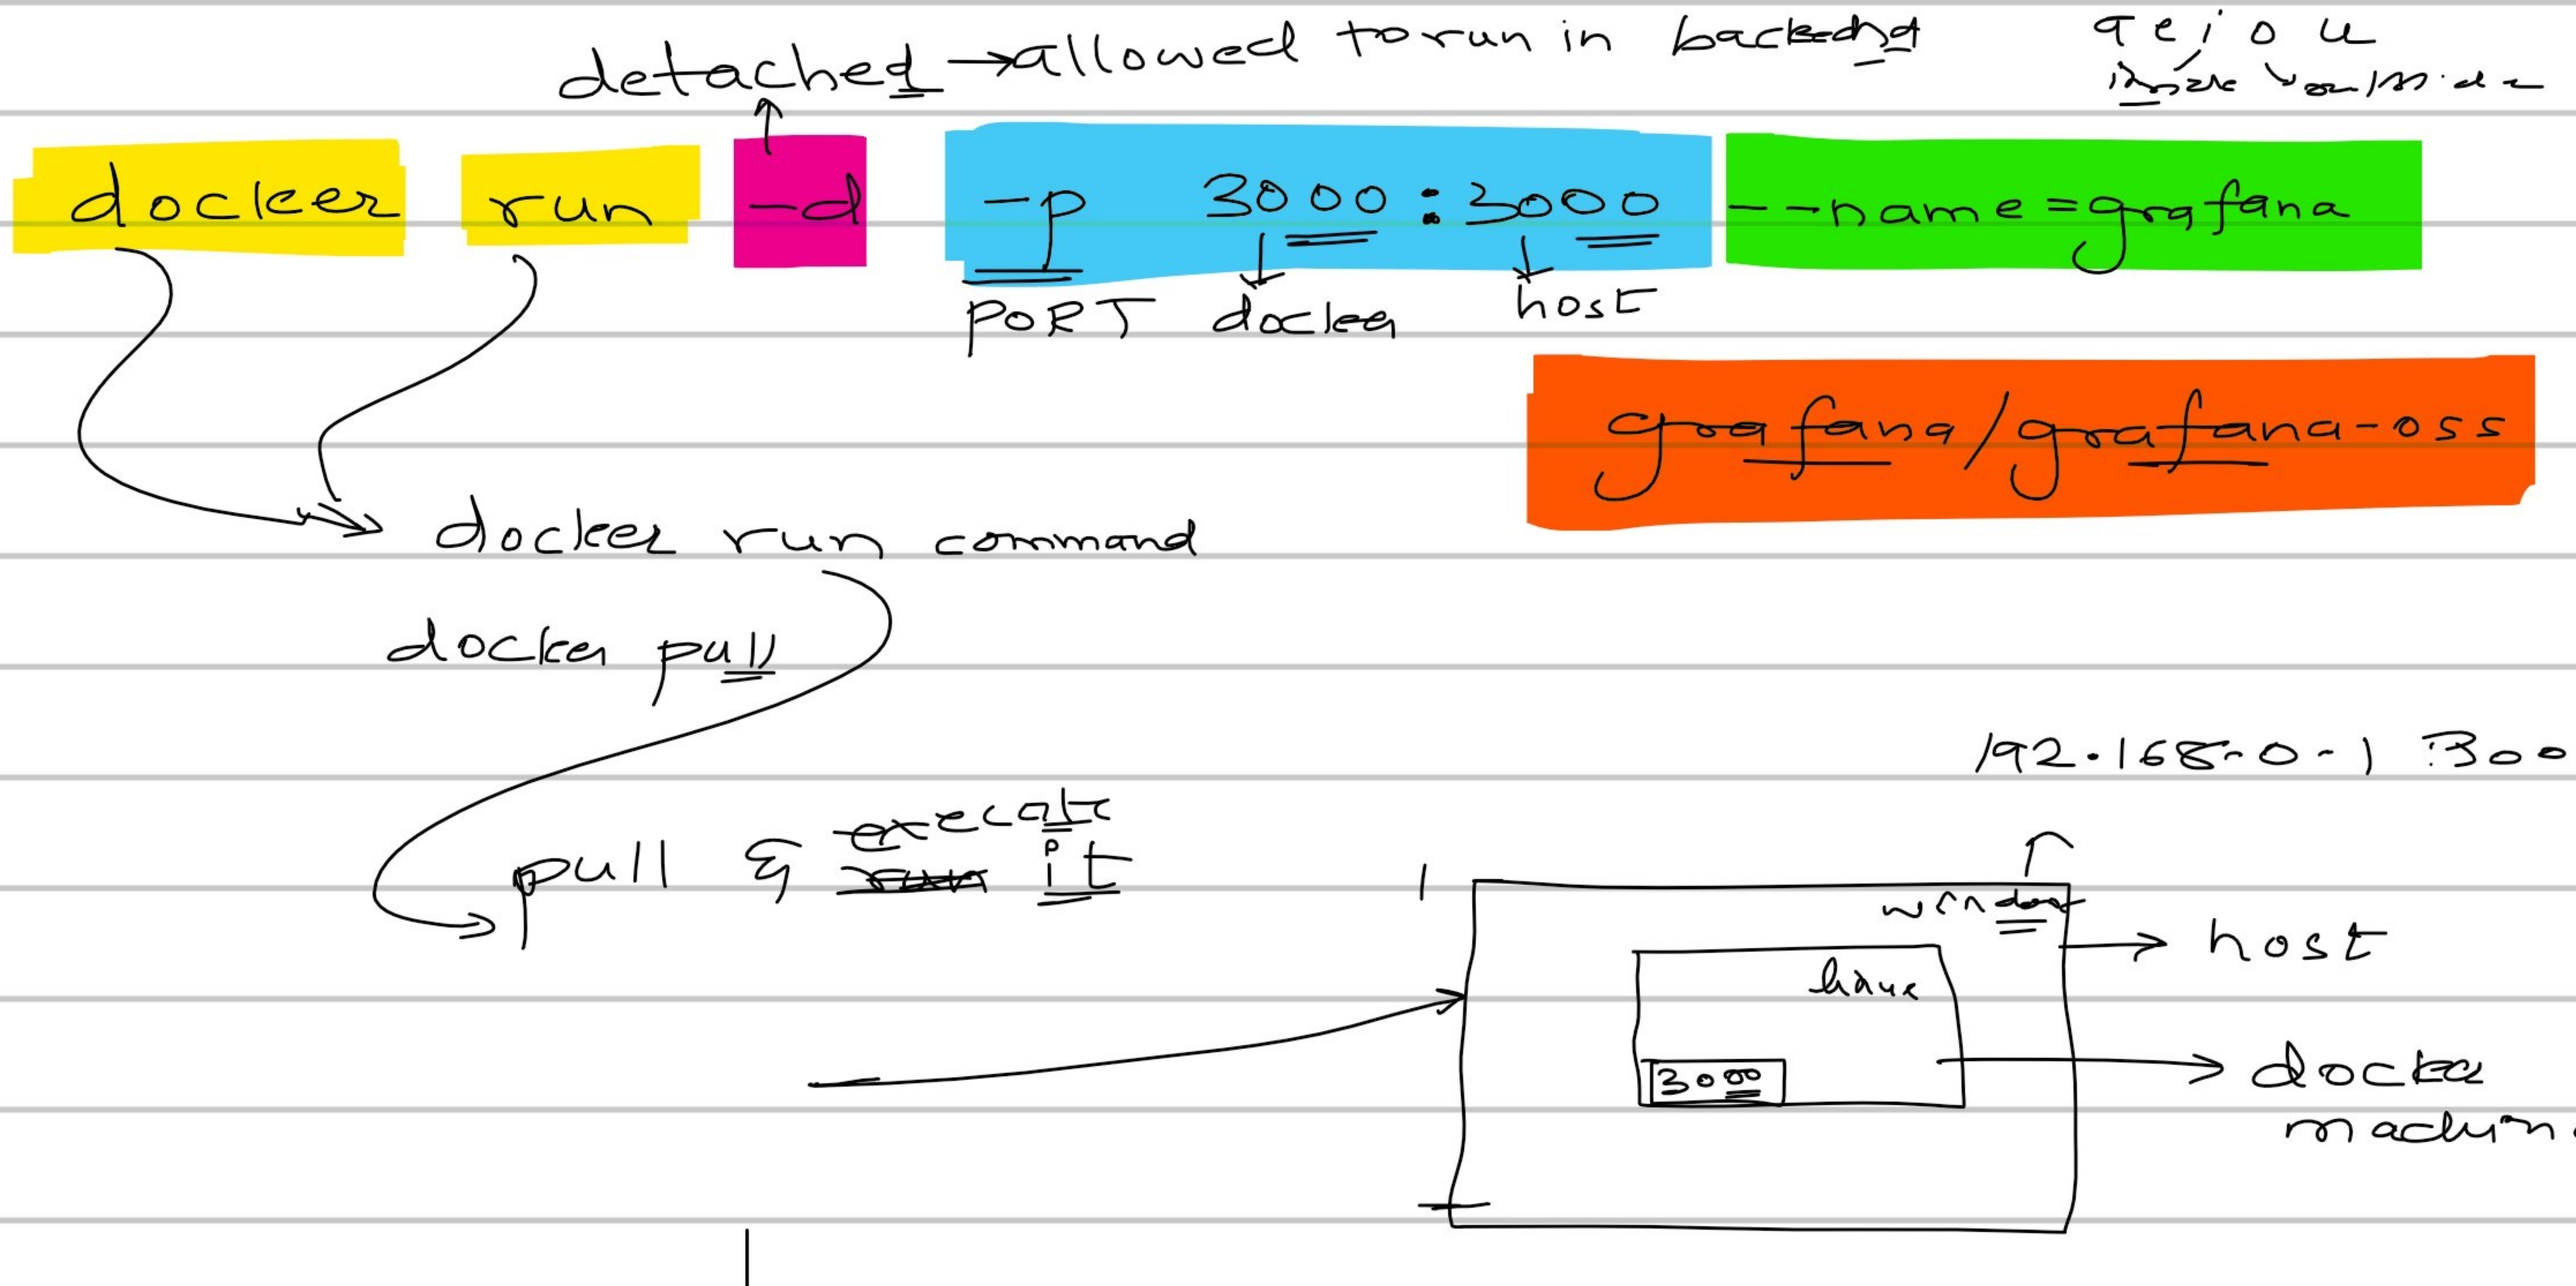 detached → allowed to run in backend
a e i o u
docker run -d -p 3000:3000 --name=grafana
PORT docker host
grafana/grafana-oss
docker run command
docker pull
192.168.0.1 :300
execute
pull & run it
window
host
3000
docker
machin